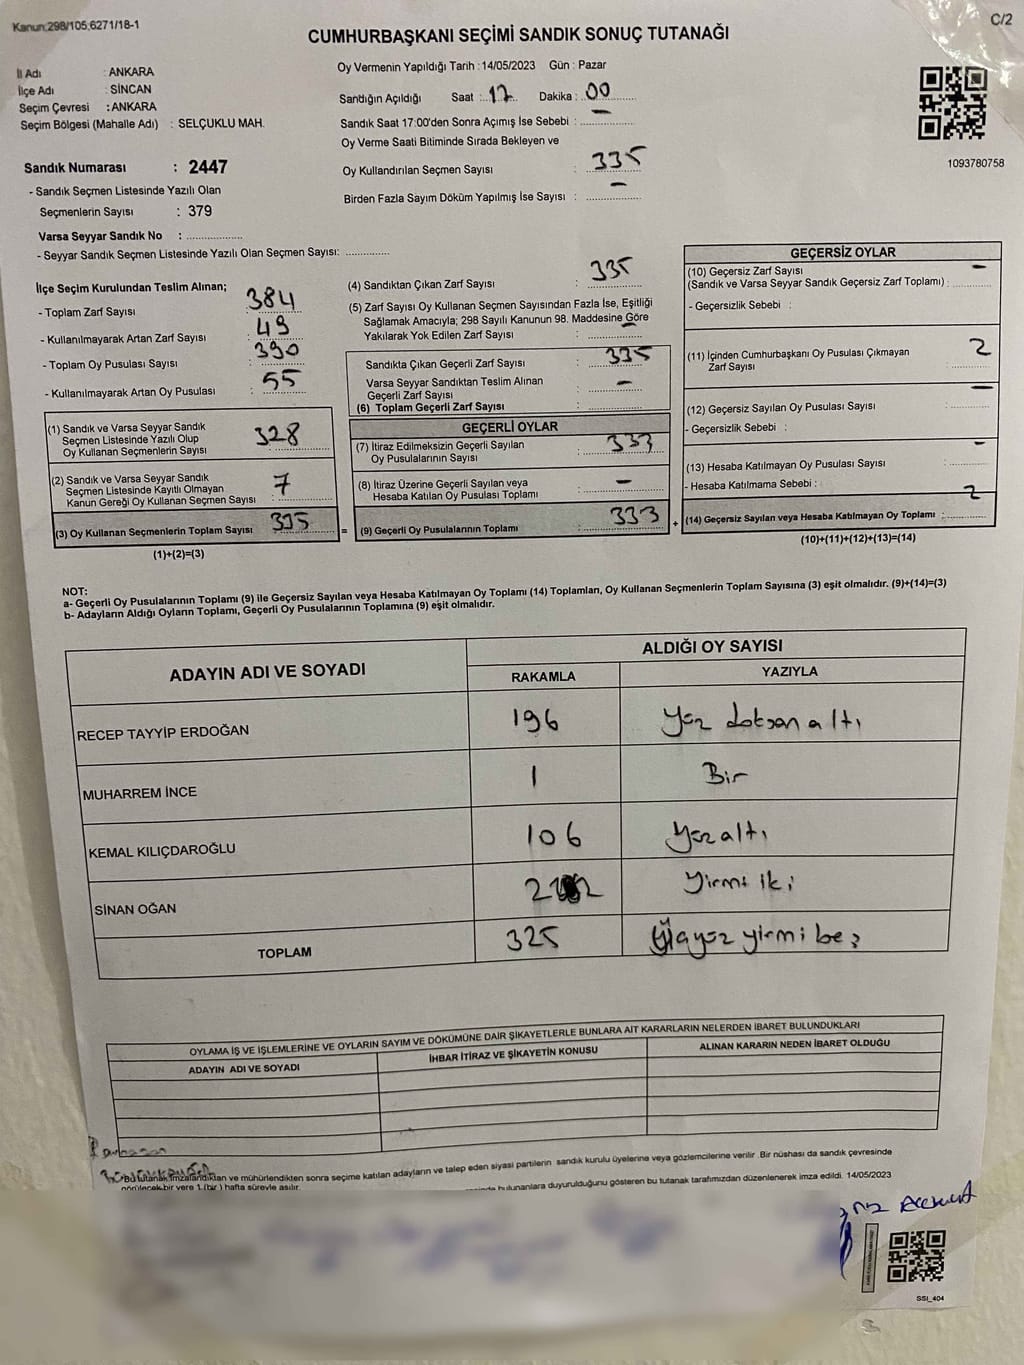 Kanun:298/105,6271/18-1
C/2
CUMHURBAŞKANI SEÇİMİ SANDIK SONUÇ TUTANAĞI
İl Adı : ANKARA
İlçe Adı : SİNCAN
Seçim Çevresi : ANKARA
Seçim Bölgesi (Mahalle Adı) : SELÇUKLU MAH.
Oy Vermenin Yapıldığı Tarih : 14/05/2023 Gün : Pazar
Sandığın Açıldığı Saat : 17 Dakika : 00
Sandık Saat 17:00'den Sonra Açımış İse Sebebi : —
Oy Verme Saati Bitiminde Sırada Bekleyen ve
Oy Kullandırılan Seçmen Sayısı : 335
Birden Fazla Sayım Döküm Yapılmış İse Sayısı : —
1093780758
Sandık Numarası : 2447
- Sandık Seçmen Listesinde Yazılı Olan
Seçmenlerin Sayısı : 379
Varsa Seyyar Sandık No : ..................
- Seyyar Sandık Seçmen Listesinde Yazılı Olan Seçmen Sayısı: ..............
İlçe Seçim Kurulundan Teslim Alınan;
- Toplam Zarf Sayısı : 384
- Kullanılmayarak Artan Zarf Sayısı : 49
- Toplam Oy Pusulası Sayısı : 390
- Kullanılmayarak Artan Oy Pusulası : 55
(1) Sandık ve Varsa Seyyar Sandık
Seçmen Listesinde Yazılı Olup
Oy Kullanan Seçmenlerin Sayısı : 328
(2) Sandık ve Varsa Seyyar Sandık
Seçmen Listesinde Kayıtlı Olmayan
Kanun Gereği Oy Kullanan Seçmen Sayısı : 7
(3) Oy Kullanan Seçmenlerin Toplam Sayısı : 335 =
(1)+(2)=(3)
(4) Sandıktan Çıkan Zarf Sayısı : 335
(5) Zarf Sayısı Oy Kullanan Seçmen Sayısından Fazla İse, Eşitliği
Sağlamak Amacıyla; 298 Sayılı Kanunun 98. Maddesine Göre
Yakılarak Yok Edilen Zarf Sayısı : —
Sandıkta Çıkan Geçerli Zarf Sayısı : 335
Varsa Seyyar Sandıktan Teslim Alınan
Geçerli Zarf Sayısı : —
(6) Toplam Geçerli Zarf Sayısı : ..................
GEÇERLİ OYLAR
(7) İtiraz Edilmeksizin Geçerli Sayılan
Oy Pusulalarının Sayısı : 333
(8) İtiraz Üzerine Geçerli Sayılan veya
Hesaba Katılan Oy Pusulası Toplamı : —
(9) Geçerli Oy Pusulalarının Toplamı : 333 +
GEÇERSİZ OYLAR
(10) Geçersiz Zarf Sayısı
(Sandık ve Varsa Seyyar Sandık Geçersiz Zarf Toplamı) : —
- Geçersizlik Sebebi :
(11) İçinden Cumhurbaşkanı Oy Pusulası Çıkmayan
Zarf Sayısı 2
(12) Geçersiz Sayılan Oy Pusulası Sayısı : —
- Geçersizlik Sebebi :
(13) Hesaba Katılmayan Oy Pusulası Sayısı : —
- Hesaba Katılmama Sebebi :
(14) Geçersiz Sayılan veya Hesaba Katılmayan Oy Toplamı : 2
(10)+(11)+(12)+(13)=(14)
NOT:
a- Geçerli Oy Pusulalarının Toplamı (9) ile Geçersiz Sayılan veya Hesaba Katılmayan Oy Toplamı (14) Toplamları, Oy Kullanan Seçmenlerin Toplam Sayısına (3) eşit olmalıdır. (9)+(14)=(3)
b- Adayların Aldığı Oyların Toplamı, Geçerli Oy Pusulalarının Toplamına (9) eşit olmalıdır.
ADAYIN ADI VE SOYADI
ALDIĞI OY SAYISI
RAKAMLA YAZIYLA
RECEP TAYYİP ERDOĞAN 196 Yüz doksan altı
MUHARREM İNCE 1 Bir
KEMAL KILIÇDAROĞLU 106 Yüz altı
SİNAN OĞAN Yirmi iki
TOPLAM 325 Üçyüz yirmi beş
OYLAMA İŞ VE İŞLEMLERİNE VE OYLARIN SAYIM VE DÖKÜMÜNE DAİR ŞİKAYETLERLE BUNLARA AİT KARARLARIN NELERDEN İBARET BULUNDUKLARI
ADAYIN ADI VE SOYADI İHBAR İTİRAZ VE ŞİKAYETİN KONUSU ALINAN KARARIN NEDEN İBARET OLDUĞU
Bu tutanak imzalandıktan ve mühürlendikten sonra seçime katılan adayların ve talep eden siyasi partilerin sandık kurulu üyelerine veya gözlemcilerine verilir .Bir nüshası da sandık çevresinde
görülecek bir yere 1 (bir ) hafta süreyle asılır. bulunanlara duyurulduğunu gösteren bu tutanak tarafımızdan düzenlenerek imza edildi. 14/05/2023
SSI_404